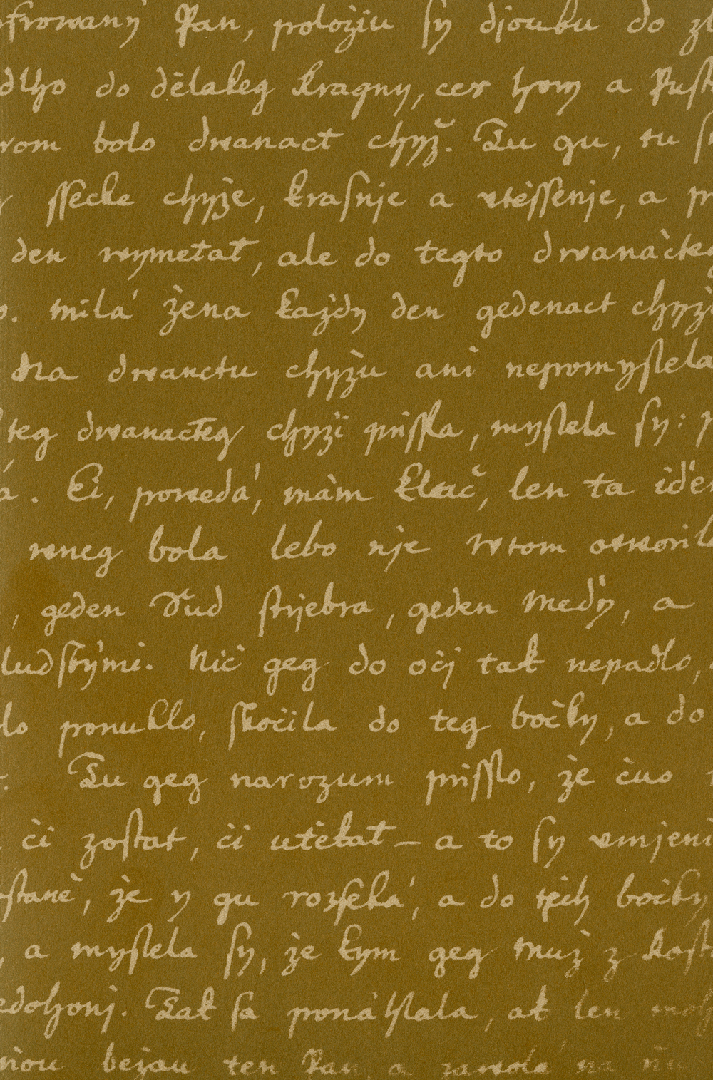 frowany Pan, položiu sy djoubu do zl
dlho do dělakeg kragny, cez hory a Pust
rom bolo dwanact chyž. Tu gu, tu s
ssecke chyže, krasnje a utěssenje, a pr
den wymetat, ale do tegto dwanáckeg
o. milá žena každy den gedenact chyž
Na dwanctu chyžu ani nepomyslela
teg dwanacteg chyži prissla, myslela sy: p
á. Ei, poweda, mám kluč, len ta ide
wneg bola lebo nje wtom otworila
, geden sud strjebra, geden medy, a
ludskými. Nič geg do očj tak nepadlo,
lo ponuklo, skočila do teg bočky, a do
Tu geg narozum prisslo, že čuo
či zostat, či utěkat – a to sy umjeni
stane, že y gu rozseká, a do tých bočky
, a myslela sy, že kym geg muž z kost
edohonj. Tak sa ponáhlala, ak len moh
ňou bežau ten Pan, a zawolá na ňu